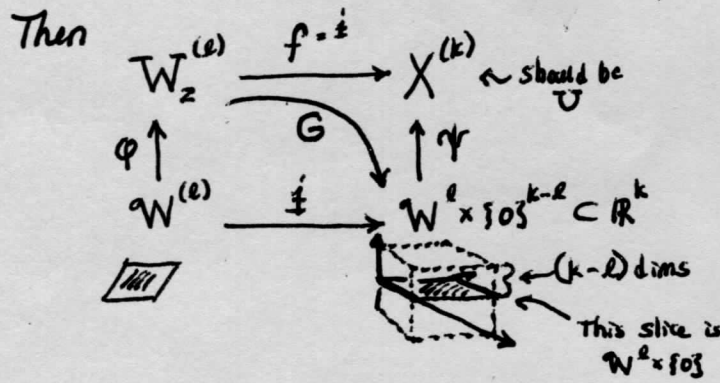 Then
W_z^(ℓ) f = i X^(k) ← should be U
G
φ ψ
W^(ℓ) i W^ℓ × {0}^{k-ℓ} ⊂ ℝ^k
← (k-ℓ) dims
This slice is
W^ℓ × {0}